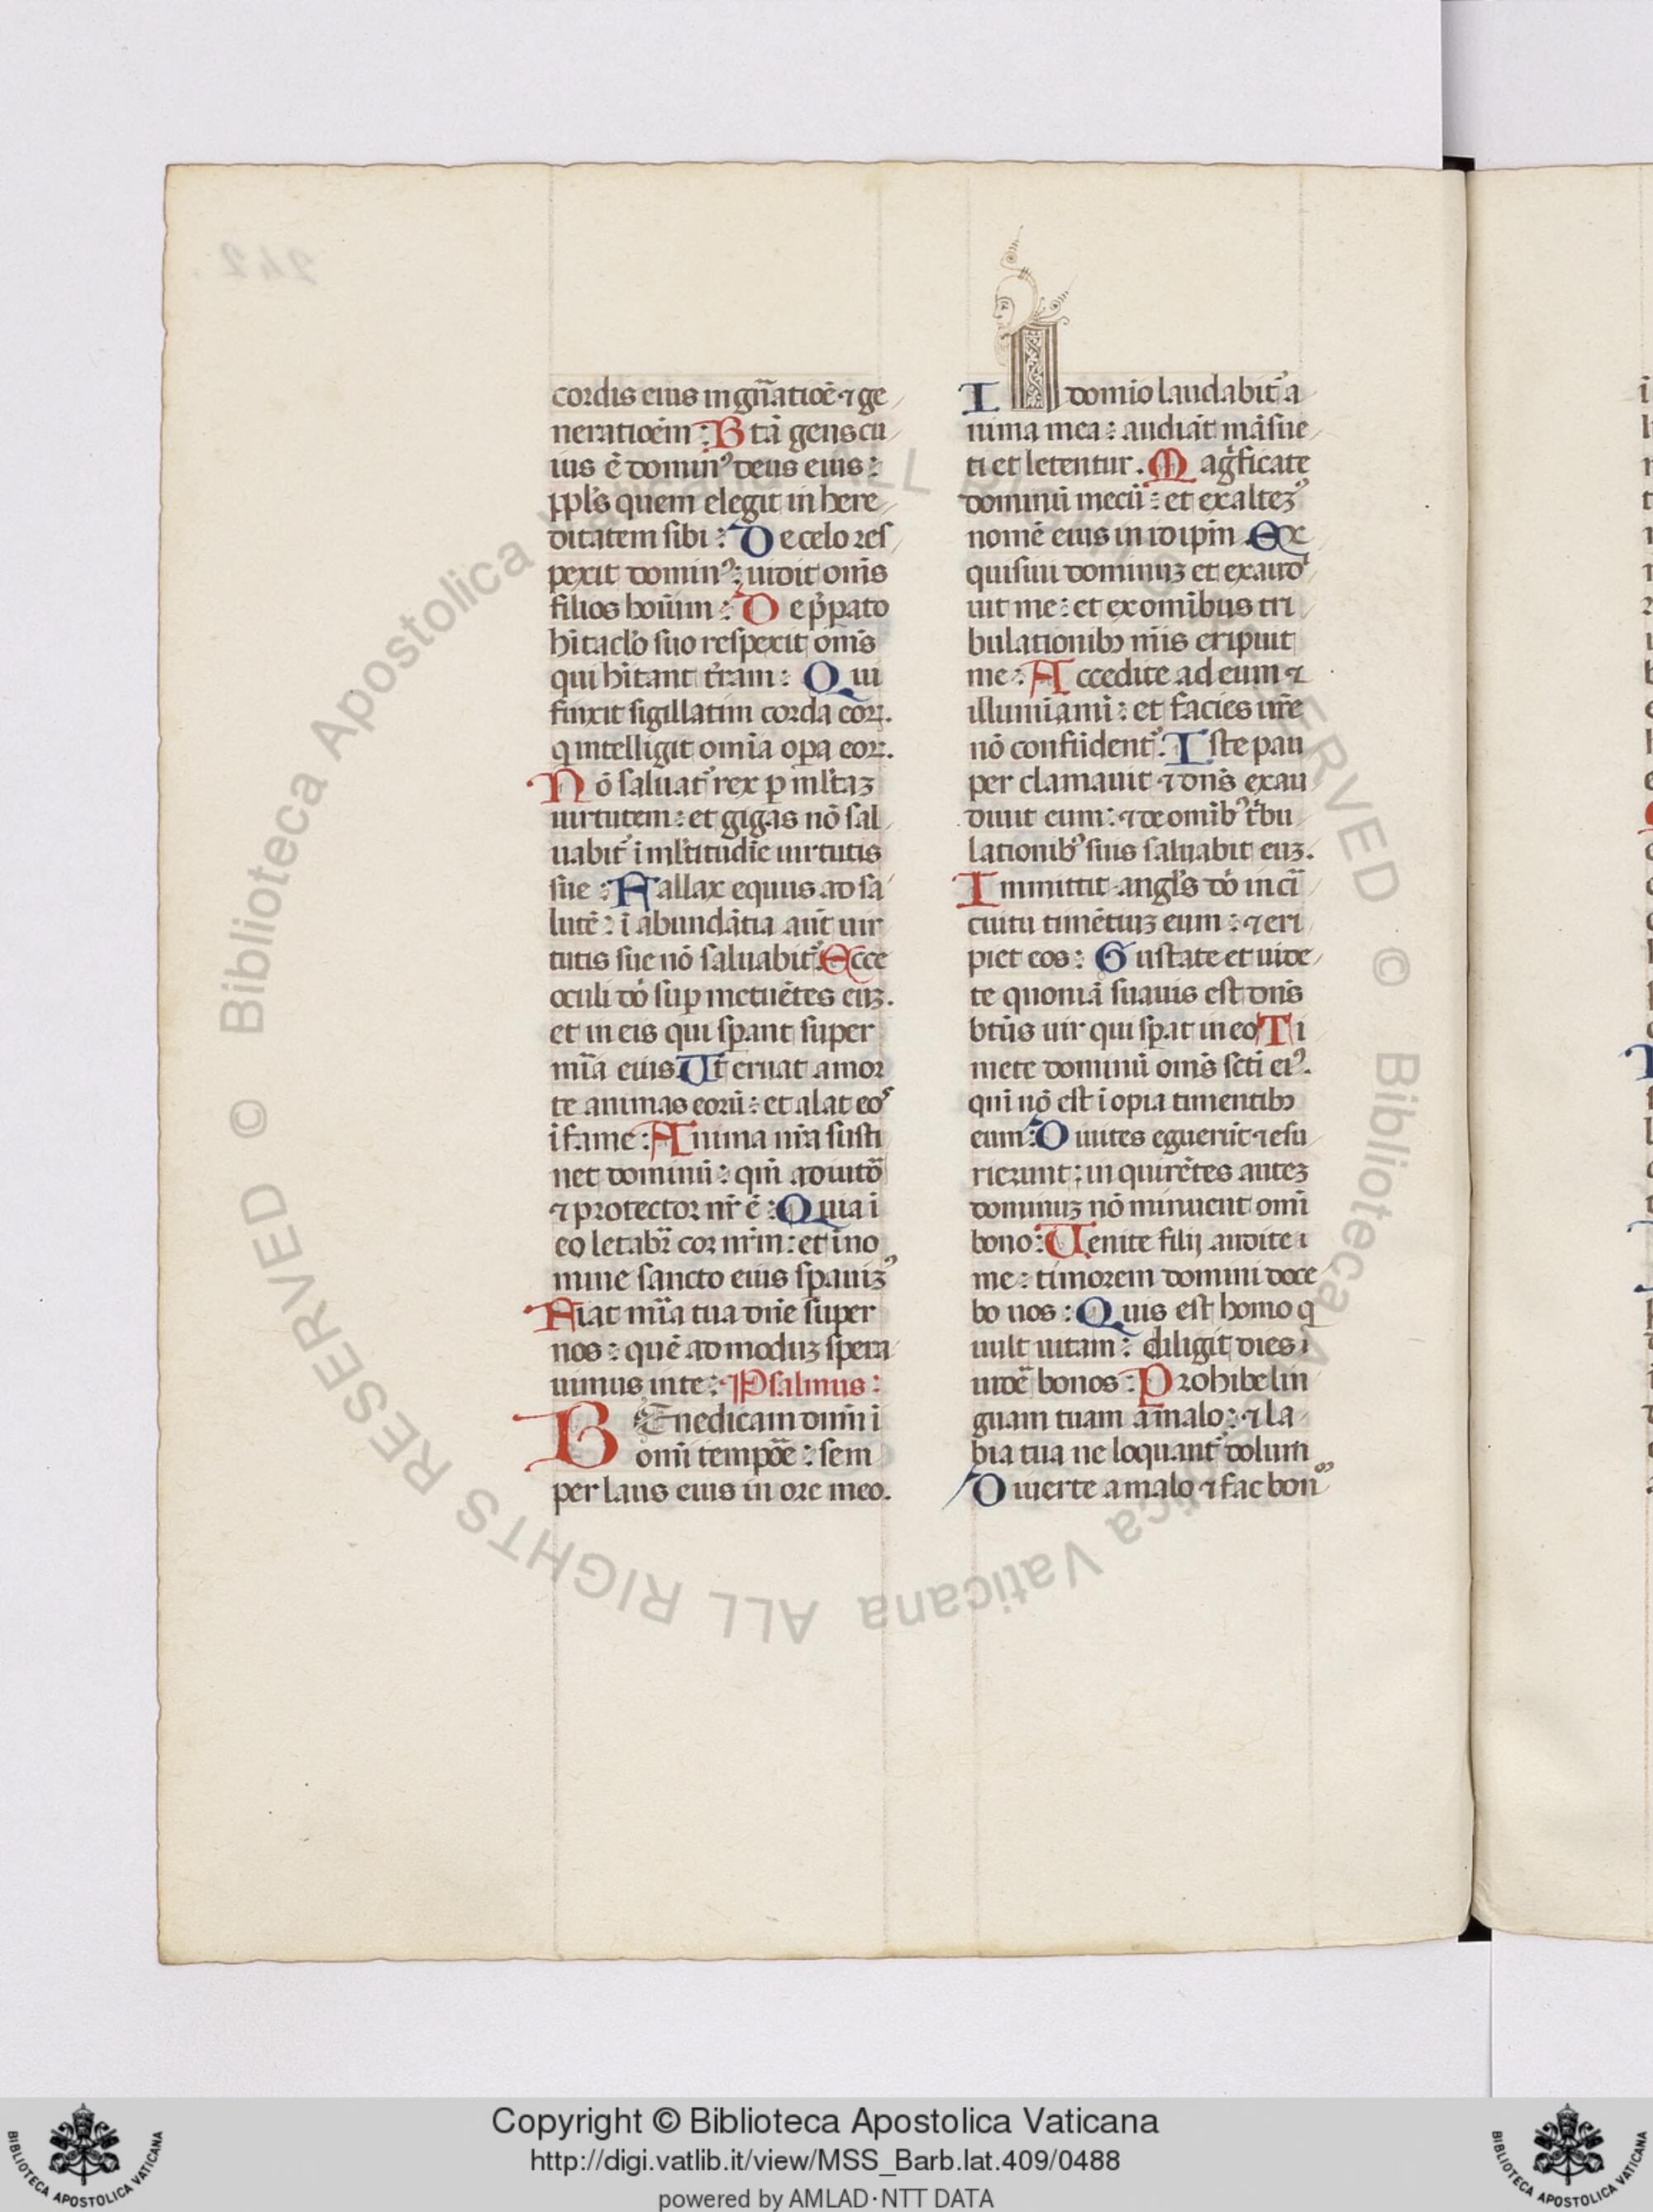 cordis eius in gn̄atioē ⁊ ge
neratioēm : B tā gens cu
ius ē domin᷒ deus eius :
ppl̄s quem elegit in here
ditatem sibi : D e celo res
pexit domin᷒ : uidit om̄s
filios hoīum : D e p̄parato
hītac̄lo suo respexit om̄s
qui hītant t̄ram : Q ui
finxit sigillatim corda eoꝝ.
q intelligit omīa oꝑa eoꝝ.
N ō saluat᷑ rex ꝑ ml̄taꝫ
uirtutem : et gigas nō sal
uabit᷑ ī ml̄titudīe uirtutis
sue : F allax equus ad sa
lutē : ī abundātia aūt uir
tutis sue nō saluabit᷑. Ecce
oculi dō suꝑ metuētes eūꝫ.
et in eis qui sꝑant super
mīa eius. Ut eruat a mor
te animas eorū : et alat eos
ī fame : A nima nr̄a susti
net dominū : qm̄ adiuto᷑
⁊ protector nr̄ ē : Quia ī
eo letabr̄ cor nr̄m : et ī no
mine sancto eius sꝑauīꝫ᷒
Fiat mīa tua dn̄e super
nos : quē ad moduꝫ spera
uimus in te : Psalmus :
B Enedicam dom̄ ī
om̄i tempoē : sem
per laus eius in ore meo.
I N domīo laudabit᷑ a
nima mea : audiāt māsue
ti et letentur. M agficate
dominū mecū : et exalteꝫ᷒
nomē eius in id ipm̄. Ex
quisiui dominuꝫ et exaudi
uit me : et ex omībus tri
bulationibꝫ mīs eripuit
me : A ccedite ad eum ⁊
illumiamī : et facies ur̄e
nō confūdent᷑. Iste pau
per clamauit ⁊ dn̄s exau
diuit eum : ⁊ de omīb᷒ tbu
lationib᷒ suis saluabit euꝫ.
I mmittit angl̄s dō in ci
cuitu timētiuꝫ eum : ⁊ eri
piet eos : G ustate et uide
te quoniā suauis est dn̄s
btūs uir qui sꝑat in eo T i
mete dominū om̄s scti ei᷒.
qm̄ nō est īopia timentibꝫ
eum : D iuites eguerūt ⁊ esu
rierunt : inquirētes auteꝫ
dominuꝫ nō minuent om̄i
bono : Uenite filij audite ī
me : timorem domini doce
bo uos : Quis est homo q
uult uitam : diligit dies ī
uidē bonos : Prohibe lin
guam tuam a malo : ⁊ la
bia tua ne loquant᷑ dolum
D iuerte a malo ⁊ fac bon
Copyright © Biblioteca Apostolica Vaticana
http://digi.vatlib.it/view/MSS_Barb.lat.409/0488
powered by AMLAD·NTT DATA